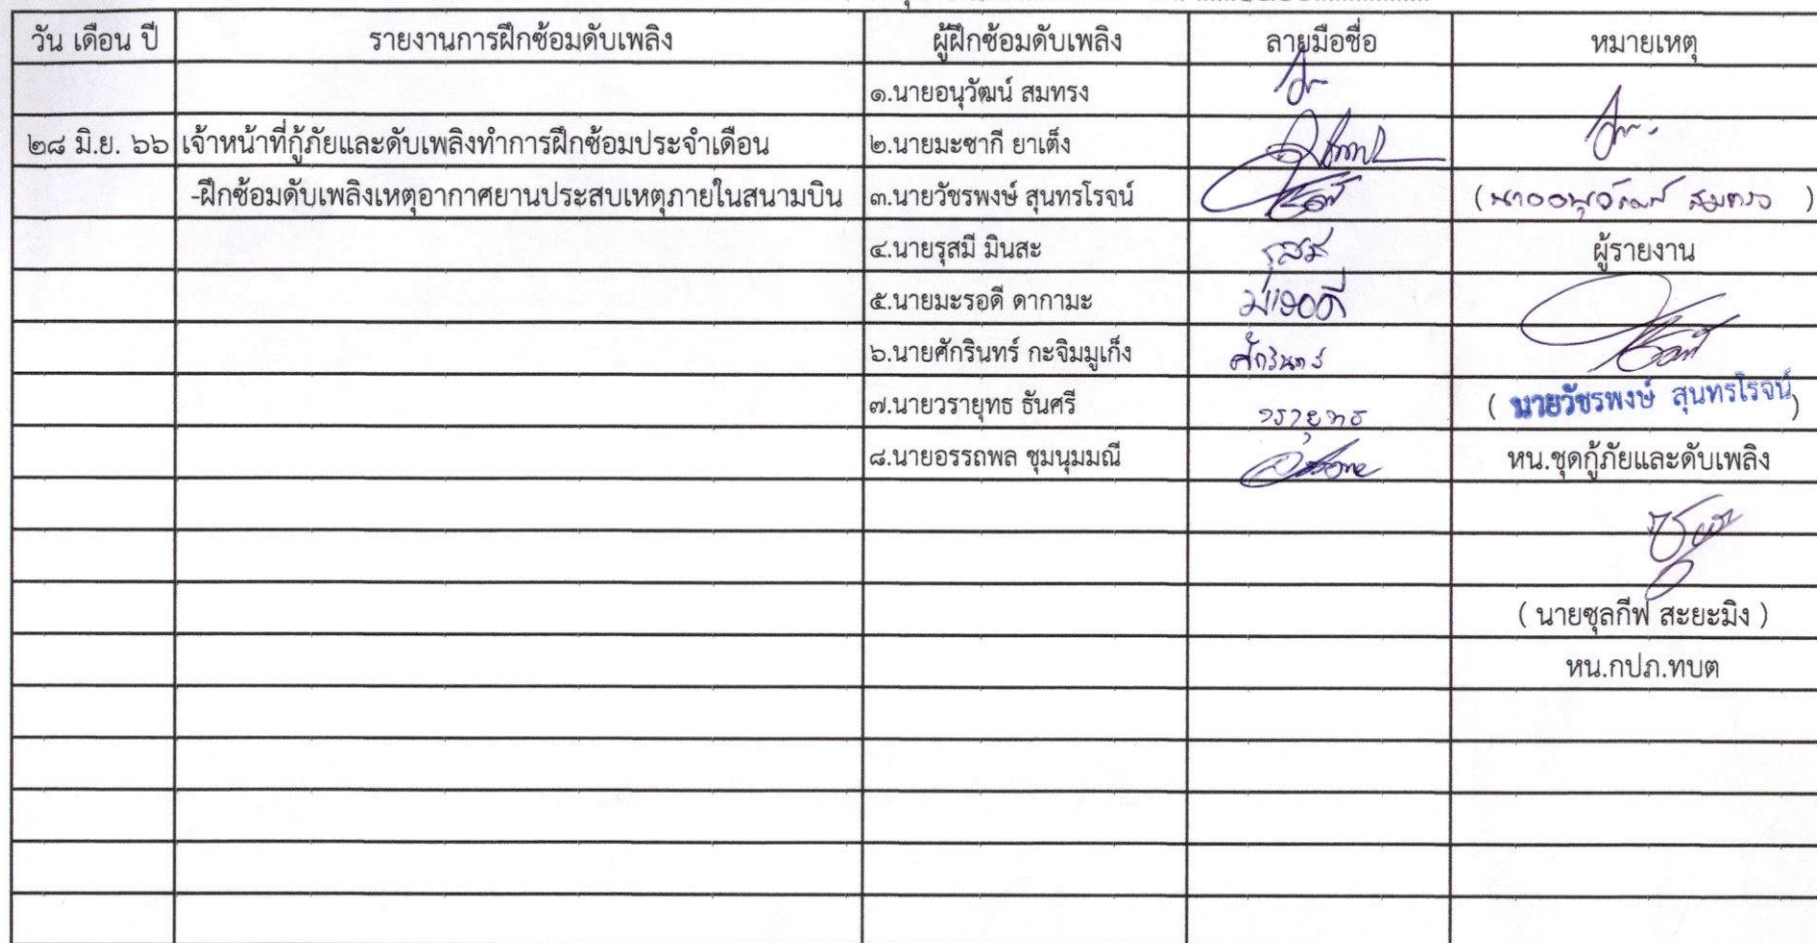 วัน เดือน ปี รายงานการฝึกซ้อมดับเพลิง ผู้ฝึกซ้อมดับเพลิง ลายมือชื่อ หมายเหตุ
๑.นายอนุวัฒน์ สมทรง
๒๘ มิ.ย. ๖๖ เจ้าหน้าที่กู้ภัยและดับเพลิงทำการฝึกซ้อมประจำเดือน ๒.นายมะซากี ยาเต็ง
-ฝึกซ้อมดับเพลิงเหตุอากาศยานประสบเหตุภายในสนามบิน ๓.นายวัชรพงษ์ สุนทรโรจน์ (นายอนุวัฒน์ สมทรง)
๔.นายรุสมี มินสะ รุสมี ผู้รายงาน
๕.นายมะรอดี ดากามะ มะรอดี
๖.นายศักรินทร์ กะจิมมูเก็ง ศักรินทร์
๗.นายวรายุทธ ธันศรี วรายุทธ ( นายวัชรพงษ์ สุนทรโรจน์ )
๘.นายอรรถพล ชุมนุมมณี หน.ชุดกู้ภัยและดับเพลิง
( นายซุลกีฟ สะยะมิง )
หน.กปภ.ทบต